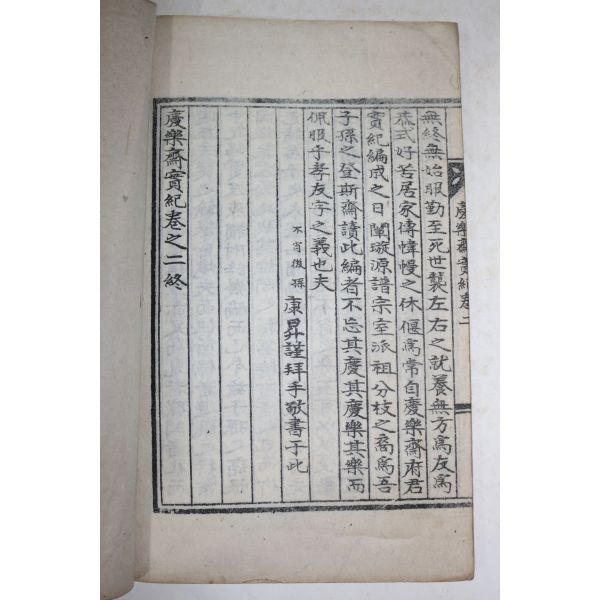 慶樂齋實紀卷二
無終無始服勤至死世襲左右之就養無方爲友爲
恭式好若居家傳幃幔之休偃爲常自慶樂齋府君
實紀編成之日闡璇源譜宗室派祖分枝之裔爲吾
子孫之登斯齋讀此編者不忘其慶其慶樂其樂而
佩服乎孝友字之義也夫
不肖後孫 康昇謹拜手敬書于此
慶樂齋實紀卷之二終